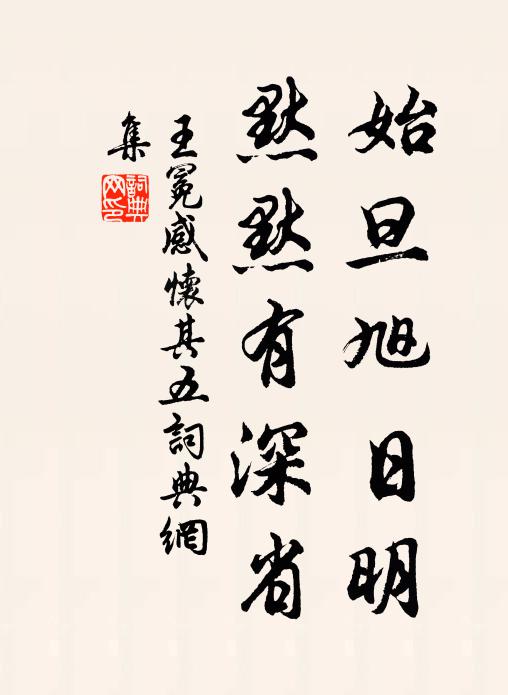 始旦旭日明
默默有深省
王冕感懷其五詞典網
集
詞典
网印